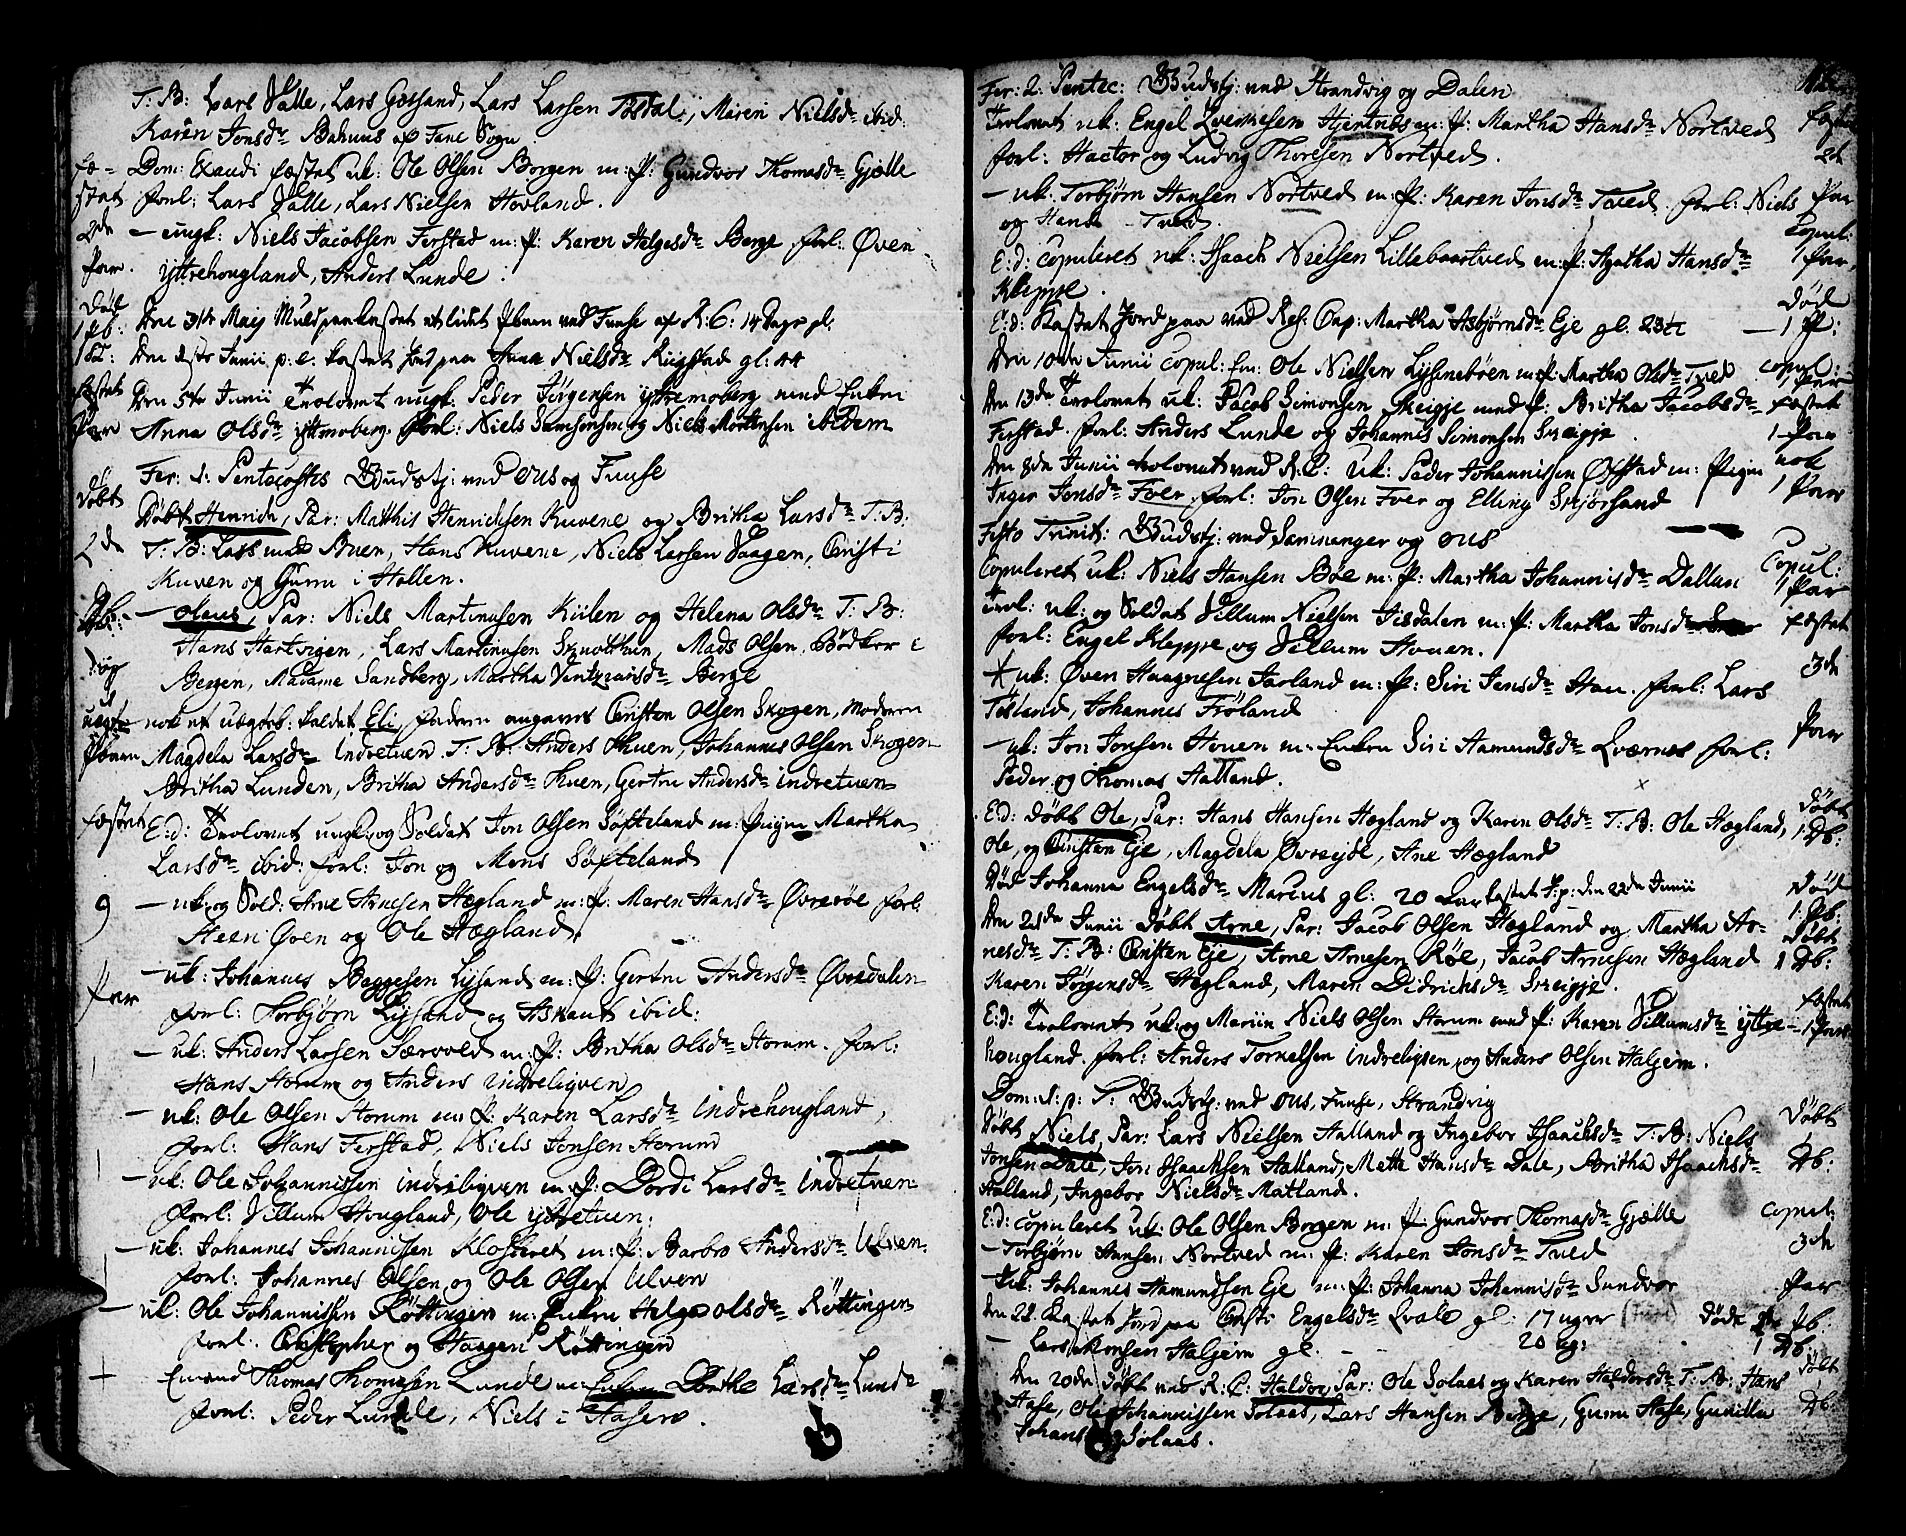 T: B: Lars Valle, Lars Gøtsand, Lars Larsen Tøsdal, Maren Nielsdr ibid:
Karen Jonsdr Bahuus af Fane Sogn
fæ- Dom: Exaudi fæstet uk: Ole Olsen Borgen m: P: Gundvor Thomasdr Gjelle
stet forl: Lars Valle, Lars Nielsen Hovland.
2de - ungk: Niels Jacobsen Ferstad m: P: Karen Helgesdr Berge forl: Øven
Par. yttrehougland, Anders Lunde.
Død
1 Pb: Den 31te Maij Muldpaakastet et lidet Pbarn ved Fuuse af R: C: 14 Dage gl.
1 Den 1ste Junii p. e. kastet Jord paa Anna Nielsdr Rigstad gl: 44
fæstet Den 5te Junii Trolovet ungk: Peder Jørgensen yttremoberg med Enken
Par Anna Olsdr yttremoberg. forl: Niels Samsonsen og Niels Mortensen ibidem
Fer: 1: Pentecostes Gudstj: ved OUS og Fuuse
Døbt Døbt Henrich, Par: Matthis Henrichsen Kuvene og Britha Larsdr T: B:
2de T: B: Lars Buen, Hans Kuvene, Niels Larsen Vaagen, Christi
Kuven og Guru i Hallen.
Db: - Olaus, Par: Niels Martinusen Kiilen og Helena Olsdr T: B:
Hans Hartvigen, Lars Martinusen Skuotthuen, Mads Olsen Bödker i
og Bergen, Madame Sandberg, Martha Ventzaisdr Berge
uægte nok et uægteb: kaldet Eli, faderen angaves Christen Olsen Skogen, Moderen
Pbarn Magdela Larsdr Indretuen. T: B: Anders Thuen, Johannes Olsen Skogen
Britha Lunden, Britha Andersdr Thuen, Gertru Andersdr indretuen
fæstet E: d: Trolovet ungk: og Soldat Jon Olsen Søfteland m: Pigen Martha
Larsdr ibid: forl: Jon og Mons Søfteland
9 - uk: og Sold: Arne Arnesen Hægland m: P: Maren Hansdr Øvrerøe forl:
Steen Øven og Ole Hægland.
- uk: Johannes Baggesen Lysand m: P: Gertru Andersdr Øvredalen
Par forl: Torbjørn Lysand og Askaut ibid:
- uk: Anders Larsen Særvold m: P: Britha Olsdr Horum. forl:
Hans Horum og Anders indreligven
- uk: Ole Olsen Horum m: P: Karen Larsdr indrehougland,
forl: Hans Ferstad, Niels Jonsen Horum
- uk: Ole Johannissen indreligven m: P: Dordi Larsdr indretuen
forl: Villum Hougland, Ole yttretuen.
- uk: Johannes Johannissen Klosteret m: P: Barbro Andersdr Ulven
forl: Johannes Olsen og Ole Olsen Ulven
- uk: Ole Johannissen Røttingen m: Enken Helge Olsdr Røttingen
forl: Christopher og Haagen Røttingen
Emand Thomas Thomesen Lunde m: Enken Dorthe Larsdr Lunde
forl: Peder Lunde, Niels i
Fer: 2: Pentec: Gudstj: ved Strandvig og Dalen
Trolovet uk: Engel m: P: Martha Hansdr Nortved fæstet
forl: Hactor og Ludvig Thoresen Nortved. 2de
- uk: Torbjørn Hansen Nortved m: P: Karen Jonsdr Tved. forl: Niels Par
og Hans - Tved
E: d: copuleret uk: Isaach Nielsen Lillebaartved m: P: Agatha Hansdr Copul: 1 Par
Kleppe.
E: d: Kastet Jord paa ved Res: Cap: Martha Asbjørnsdr Eje gl. 23 Død - 1 P:
Den 10de Junii copul: Em: Ole Nielsen Lyssenebøen m: P: Martha Olsdr Tved copul: 1 Par
Den 13de Trolovet uk: Jacob Simonsen Skeigje med P: Britha Jacobsdr fæstet
Ferstad. forl: Anders Lunde og Johannes Simonsen Skeigje. 1 Par
Den 8de Junii trolovet ved R: C: uk: Peder Johannissen Øxstad m: Pigen nok
Inger Jonsdr Fver. forl: Jon Olsen Fver og Elling Skjørsand 1 Par
Festo Trinit: Gudstj: ved Samnanger og OUS
Copuleret uk: Niels Hansen Bøe m: P: Martha Johannisdr Dallan Copul: 1 Par
Trol: uk: og Soldat Villum Nielsen Tisdalen m: P: Martha Jonsdr fæstet
forl: Engel Kleppe og Villum Houen.
* uk: Øven Haagnesen Farland m: P: Siri Jensdr Hau. forl: Lars 3de
Tøsland, Johannes Frøland
- uk: Jon Jonsen Houen m: Enken Siri Aamundsdr Qværnes forl: Par
Peder og Thomas Aalland.
E: d: Døbt Ole, Par: Hans Hansen Hægland og Karen Olsdr T: B: Ole Hægland, Døbt
Ole, og Christen Eje, Magdela Øvreejde, Ane Hægland 1 Db:
Død Johanna Engelsdr Marhuus gl: 20 kastet J: p: den 22de Junii Død 1 Pb:
Den 21de Junii Døbt Arne, Par: Jacob Olsen Hægland og Martha Ar- Døbt
nesdr T: B: Christen Eje, Arne Arnesen Røe, Jacob Arnesen Hægland 1 Db:
Karen Jørgensdr Hægland, Maren Didrichsdr Skeigje.
E: d: Trolovet uk: og Mariin Niels Olsen Horum med P: Karen Villumsdr yttre- fæstet 1 Par
hougland. forl: Anders Torkelsen indreligven, og Anders Olsen Halgjem.
Dom: 1: p: T: Gudstj: ved OUS, Fuuse, Strandvig
Døbt Niels, Par: Lars Nielsen Aalland og Ingebor Isaachsdr T: B: Niels Døbt
Jonsen Dale, Jon Isaachsen Aalland, Mette Hansdr Dale, Britha Isaachsdr Db:
Aalland, Ingebor Nielsdr Matland.
E: d: copuleret uk: Ole Olsen Borgen m: P: Gundvor Thomasdr Gjelle copul:
- Torbjørn Hansen Nortved m: P: Karen Jonsdr Tved 3de
- uk: Johannes Aamundsen Eje m: P: Johanna Johannisdr Sundvor Par
Den 22. Kastet Jord paa Christi Engelsdr Qvale gl: 17 uger Døde 1 Pb.
- Lars Monsen Halgjem gl. - 20 ug: 1 Db.
Den 20de Døbt ved R: C: Haldor, Par: Ole Solaas og Karen Haldorsdr T: B: Hans Døbt
Hafe, Ole Johannissen Solaas, Lars Hansen Berge, Guru Hafe, Gunilla Db:
Johans Solaas.